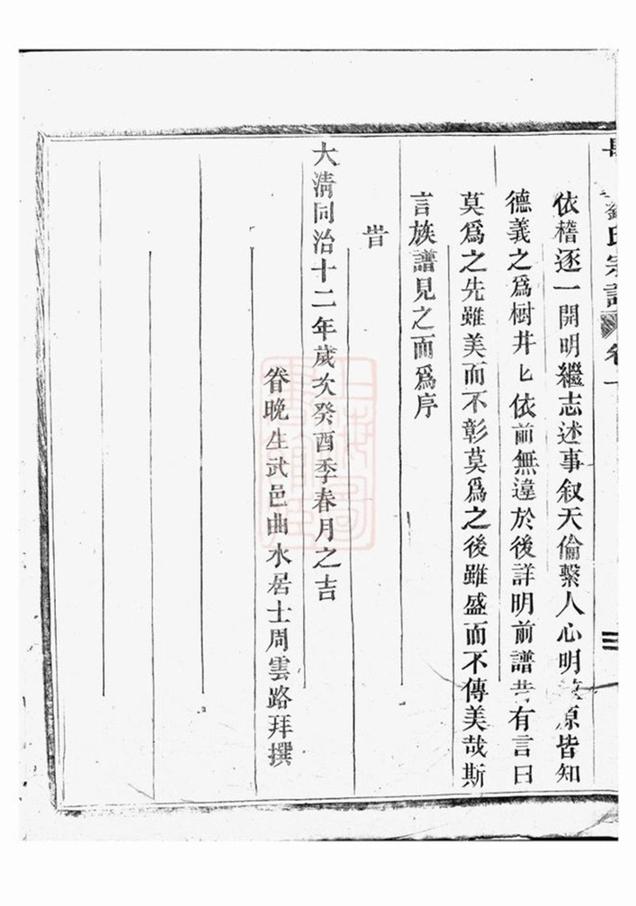 劉氏宗譜 卷一
依稽逐一開明繼志述事叙天倫繫人心明原皆知
德義之爲樹井匕依前無違於後詳明前譜昔有言曰
莫爲之先雖美而不彰莫爲之後雖盛而不傳美哉斯
言族譜見之而爲序
旹
大清同治十二年歲次癸酉季春月之吉
眷晚生武邑曲水居士周雲路拜撰